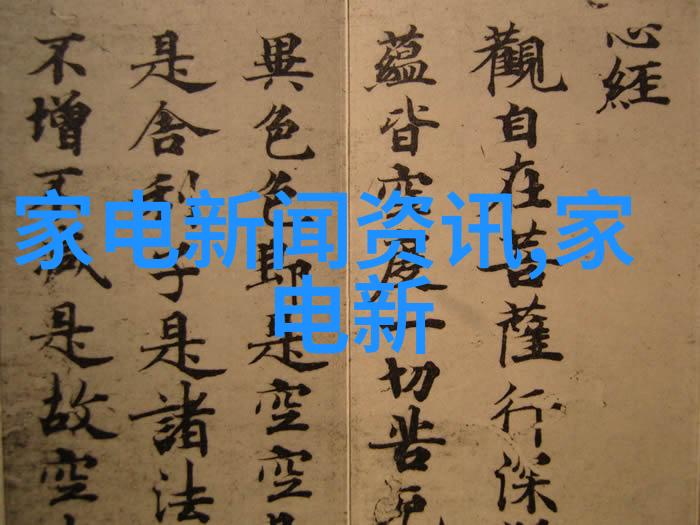 心經
觀自在菩薩行深
蘊皆空度一切苦厄
異色色即是空空是
是舍利子是諸法
不增不減是故空
家电新闻资讯,家
电新